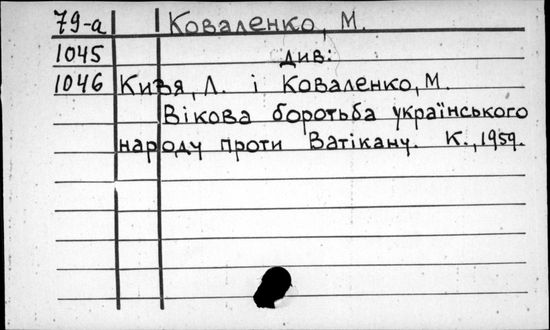 79-а Коваленко, М.
1045 див:
1046 Кизя, Л. і Коваленко, М.
Вікова боротьба українського
народу проти Ватікану. К., 1959.